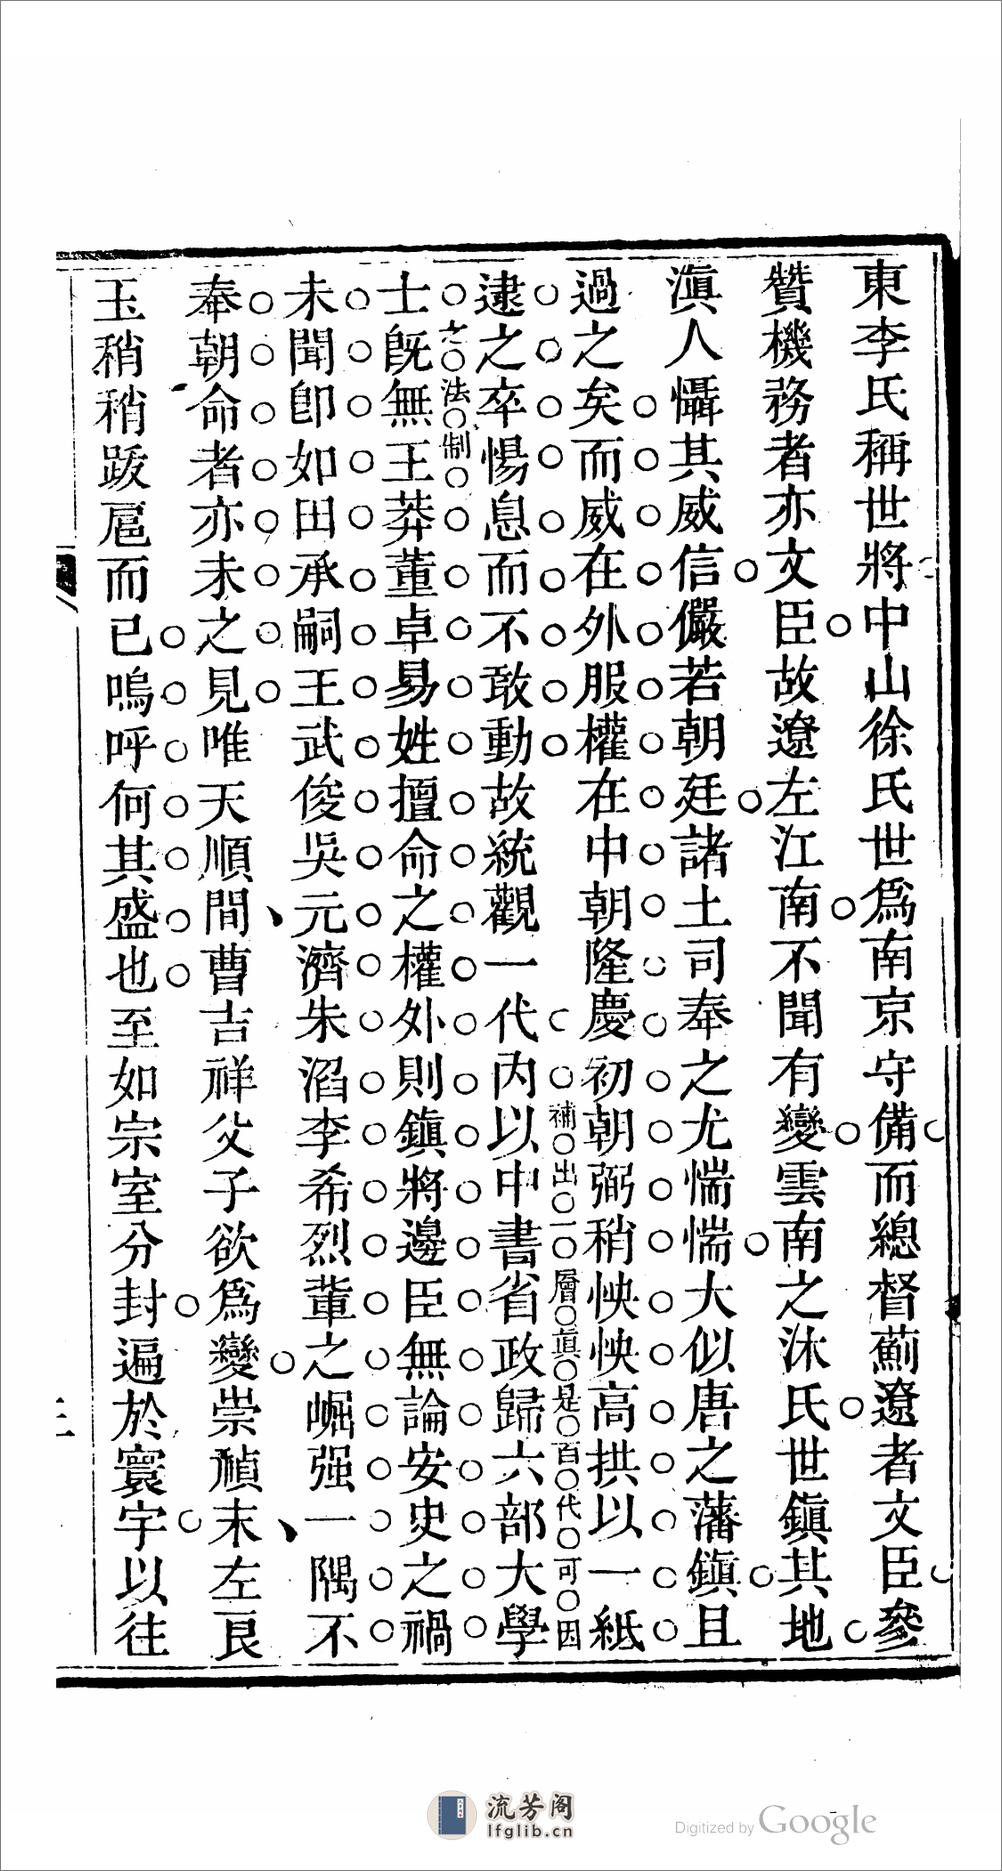 東李氏稱世將中山徐氏世爲南京守備而總督薊遼者文臣參
贊機務者亦文臣故遼左江南不聞有變雲南之沐氏世鎭其地
滇人懾其威信儼若朝廷諸土司奉之尤惴惴大似唐之藩鎭且
過之矣而威在外服權在中朝隆慶初朝弼稍怏怏高拱以一紙
逮之卒惕息而不敢動故統觀一代内以中書省政歸六部大學
補出一層眞是百代可因
之法制
士旣無王莽董卓易姓擅命之權外則鎭將邊臣無論安史之禍
未聞卽如田承嗣王武俊吳元濟朱滔李希烈輩之崛强一隅不
奉朝命者亦未之見唯天順間曹吉祥父子欲爲變崇禎末左良
玉稍稍跋扈而已嗚呼何其盛也至如宗室分封遍於寰宇以往
三
流芳阁
lfglib.cn
Digitized by Google